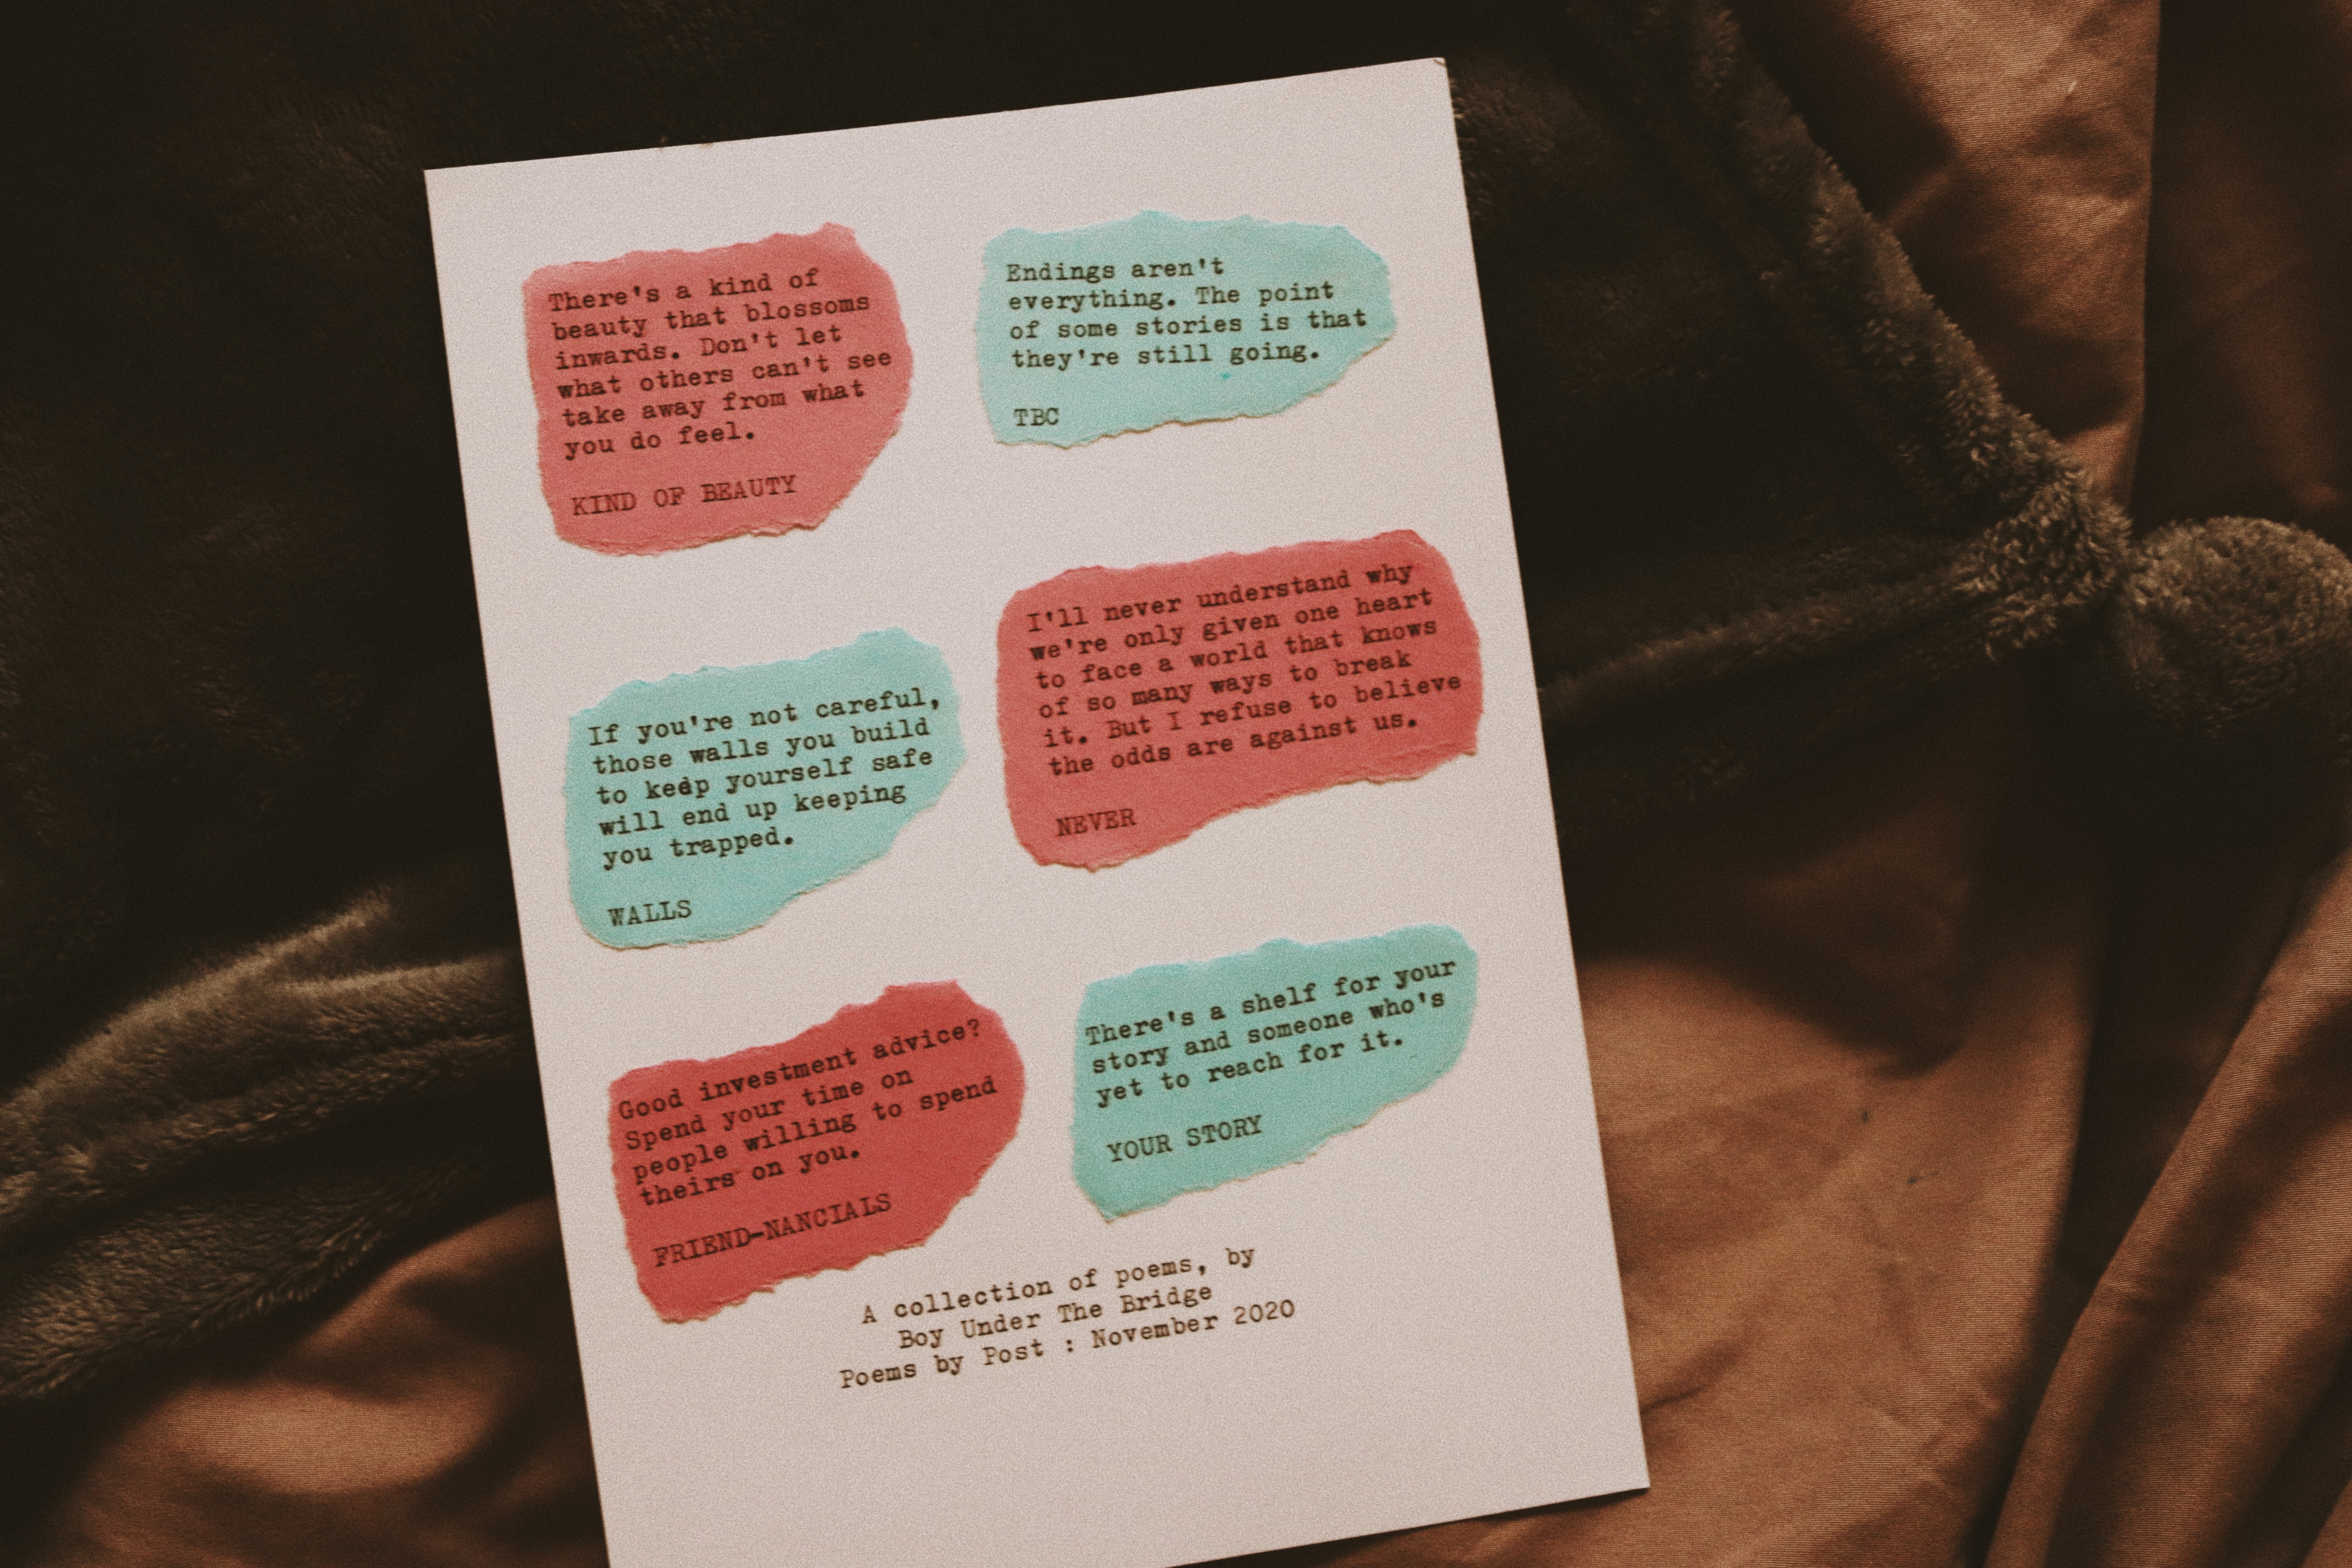 There's a kind of
beauty that blossoms
inwards. Don't let
what others can't see
take away from what
you do feel.
KIND OF BEAUTY
Endings aren't
everything. The point
of some stories is that
they're still going.
TBC
If you're not careful,
those walls you build
to keep yourself safe
will end up keeping
you trapped.
WALLS
I'll never understand why
we're only given one heart
to face a world that knows
of so many ways to break
it. But I refuse to believe
the odds are against us.
NEVER
Good investment advice?
Spend your time on
people willing to spend
theirs on you.
FRIEND-NANCIALS
There's a shelf for your
story and someone who's
yet to reach for it.
YOUR STORY
A collection of poems, by
Boy Under The Bridge
Poems by Post : November 2020